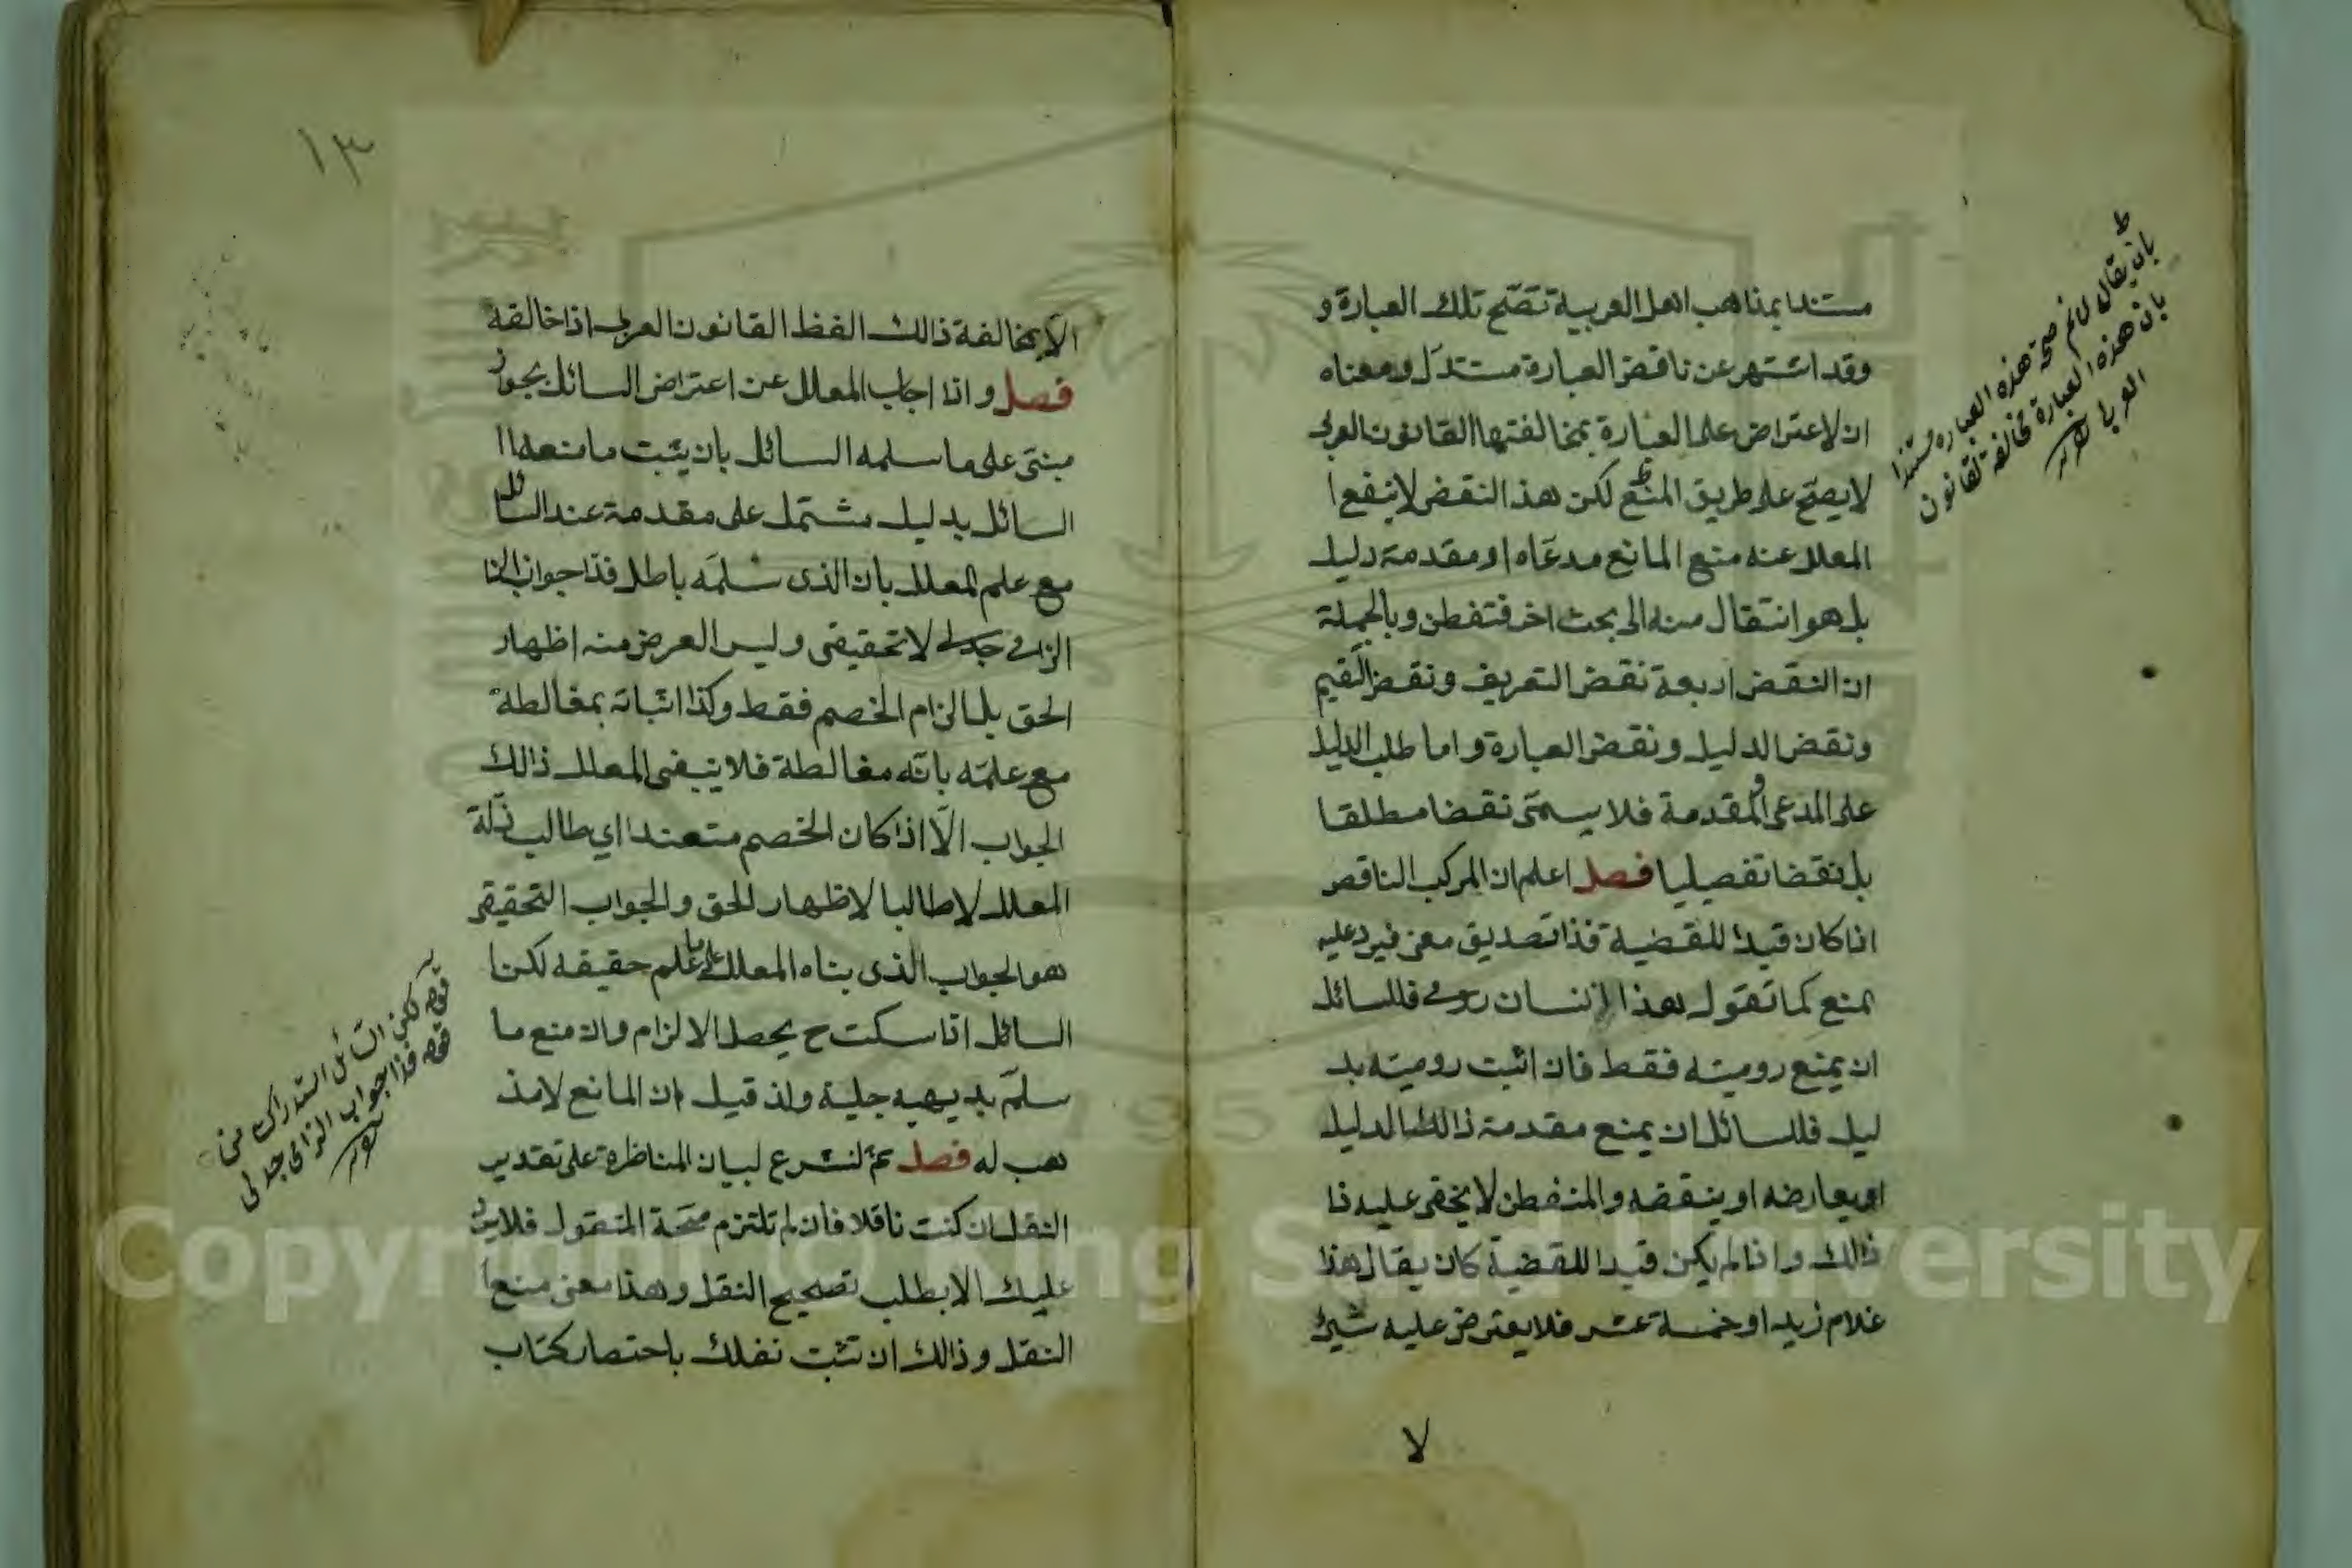 مستندا بمذاهب اهل العربية تصّح تلك العبارة و
وقد اشتهر عن ناقض العبارة مستدلّ ومعناه
ان لاعتراض على العبارة بمخالفتها القانون العربى
لايصّح على طريق المنع لكن هذ النقض لاينفع ا
المعلل عنه منع المانع مدعاه او مقدمة دليل
بل هو انتقال منه الى بحث اخر فتفطن وبالجملة
ان النقض اربعة نقض التعريف ونقض التقيم
ونقض الدليل ونقض العبارة واما طلب الدليل
على المدعى او المقدمة فلا يسمّى نقضا مطلقا
بل نقضا تفصيليا فصل اعلم ان المركب الناقص
اذا كان قيدا للقضية فذا تصديق معنى فيرد عليه
بمنع كما تقول هذا الانسان رومى فللسائل
ان يمنع روميته فقط فان اثبت روميته بد
ليل فللسائل ان يمنع مقدمة ذالك الدليل
او يعارضه او ينقضه والمتفطن لا يخفى عليه ذا
ذالك واذا لم يكن قيدا للقضية كان يقال هذا
غلام زيد او خمسة عشر فلا يعترض عليه شيئ
لا
بان يقال لانم صحة هذه العبارة مستندا
بان هذه العبارة مخالفة لقانون
١٣
الا بمخالفة ذالك الفظ القانون العربى اذا خالفه
فصل واذا اجاب المعلل عن اعتراض السائل بجواز
مبنى على ما سلمه السائل بان يثبت ما منعه ا
السائل بدليل مشتمل على مقدمة عند السائل
مع علم المعلل بان الذى سلمه باطل فذا جواب
الزامى جدلى لا تحقيقى وليس العرض منه اظهار
الحق بل الزام الخصم فقط وكذا اثباته بمغالطة
مع علمه بانه مغالطة فلا ينبغى المعلل ذالك
الجواب الّا اذا كان الخصم متعندا اي طالب ذلّة
المعلل لا طالبا لاظهار الحق والجواب التحقيقى
هو الجواب الذى بناه المعلل على ما علم حقيقه لكن ا
السائل اذا سكت ح يحصل الالزام وان منع ما
سلّم بديهيه جلية وان قيل ان المانع لا مذ
هب له فصل ثم لنشرع لبيان المناظرة على تقدير
النقل ان كنت ناقلا فان لم تلتزم صحة المنقول فلايرد
عليك الا بطلب تصحيح النقل وهذا معنى منع ا
النقل وذالك ان تثبت نفلك باحتصار كتاب
قوله لكن السائل استدراك من
قوله فذا جواب الزامى جدلى
Copyright © King Saud University
1957